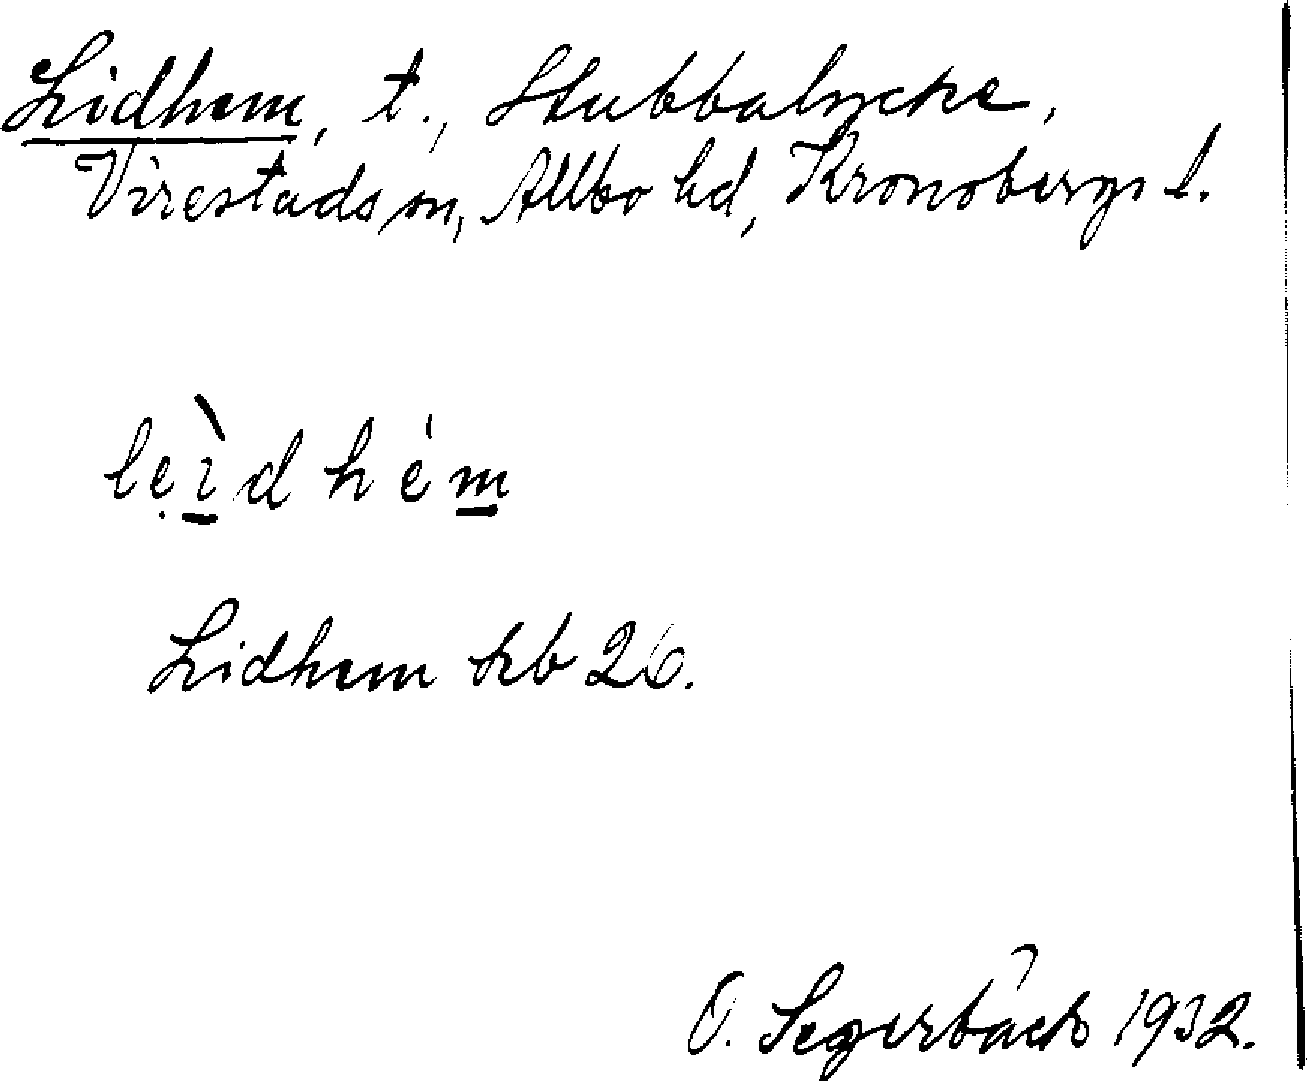 Lidhem, t., Stubbalycke,
Virestads sn, Allbo hd, Kronobergs l.
lẹì̱dhém̱
Lidhem kb 26.
O. Segerbäck 1932.